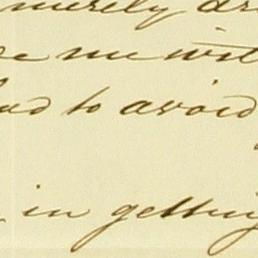 merely
me wit
to avoid
in getting